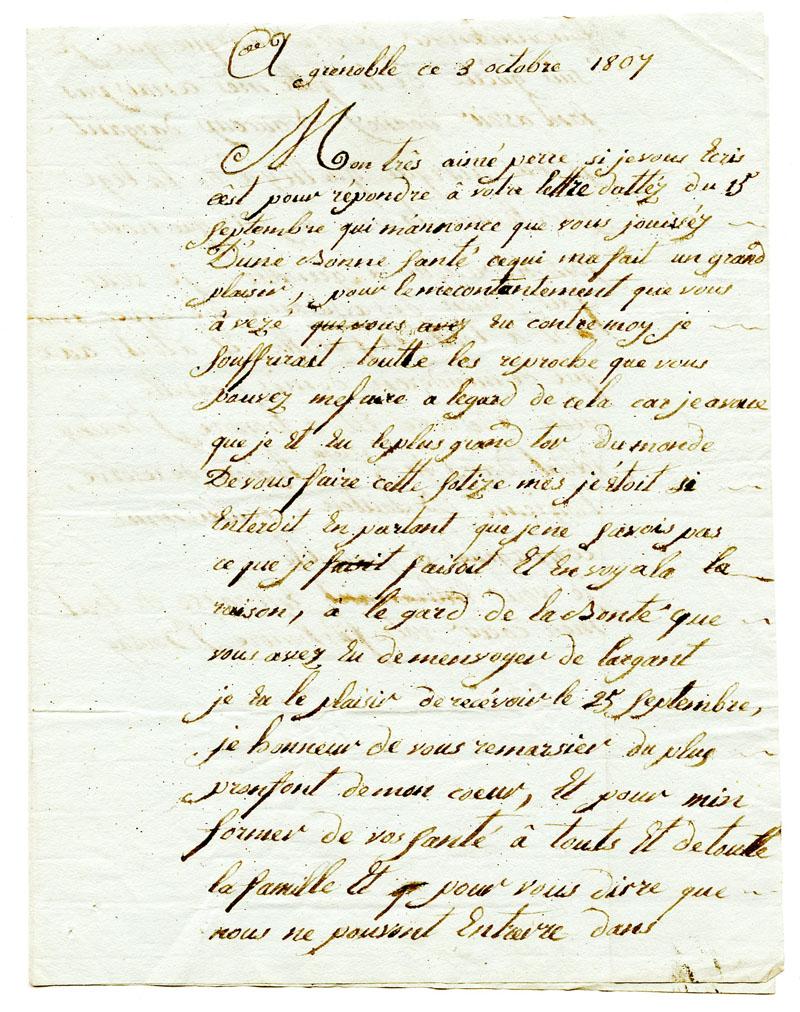 A grenoble ce 3 octobre 1807
Mon très aimé perre si je vous Ecris
cèst pour répondre à votre lettre dattéz du 15
septembre qui mannonce que vous jouisséz
D'une Bonne santé cequi ma fait un grand
plaisir, pour lemecontantement que vous
àvezé que vous avez Eu contre moy je
souffrirait toutte les reproche que vous
pouvez mefaire a legard de cela car jeavoue
que je Et Eu leplus grand tor du monde
De vous faire cette sotize mès je ètoit si
Enterdit En partant que jene savois pas
ce que je faisit faisoit Et En voyala la
raison, à le gard de la Bonté que
vous avez Eu de menvoyer de largant
je Eu le plaisir de recévoir le 25 septembre,
je honneur de vous remarsier du plus
pronfont demon coeur, Et pour min
former de vos santé à touts Et de toutte
la famille Et pour vous dirre que
nous ne pouvont Entrerre dans